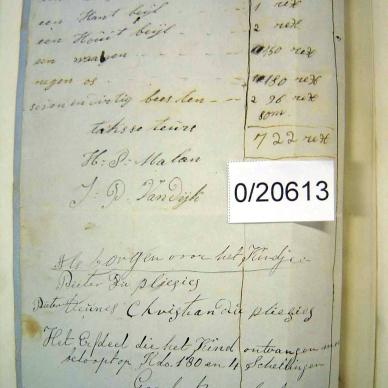 een Hant beijl - - 1 rex
een Houit beijl - - 2 rex
een waagen - - 150 rex
negen os - - 180 rex
seven en virtig beesten - - 296 rex
som
taksse teurs 722 rex
H. P. Malan
J. D. Van Dijk
0/20613
Als borgen voor het Kindje
Pieter Du pliegies
Pieter Christian Du pliegies
Het Erfdeel die het Kind ontvangen
beloopt op Rds. 180 en 4 Schellingen